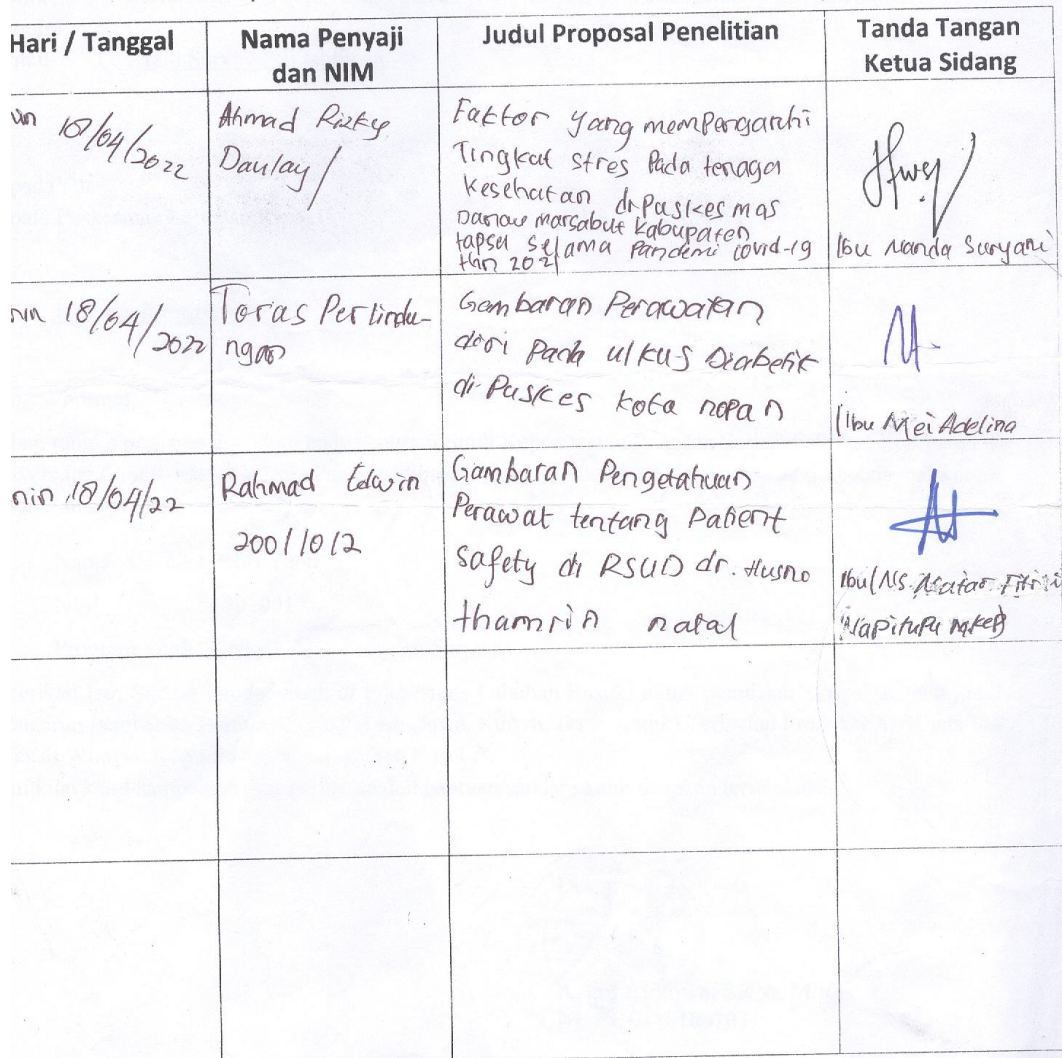 Hari / Tanggal
Nama Penyaji
dan NIM
Judul Proposal Penelitian
Tanda Tangan
Ketua Sidang
18/04/2022
Ahmad Rizky
Daulay /
Faktor yang mempengaruhi
Tingkat stres Pada tenaga
Kesehatan di Puskesmas
Danau marsabut Kabupaten
tapsel selama Pandemi covid-19
thn 2021
Ibu Nanda Suryani
nin 18/04/2022
Toras Perlindu-
ngan
Gambaran Perawatan
dari Pada ulkus Diabetik
di Puskes kota nopan
Ibu Mei Adelina
nin 18/04/22
Rahmad Edwin
20011012
Gambaran Pengetahuan
Perawat tentang Patient
safety di RSUD dr. Husno
thamrin natal
Ibu Ns.